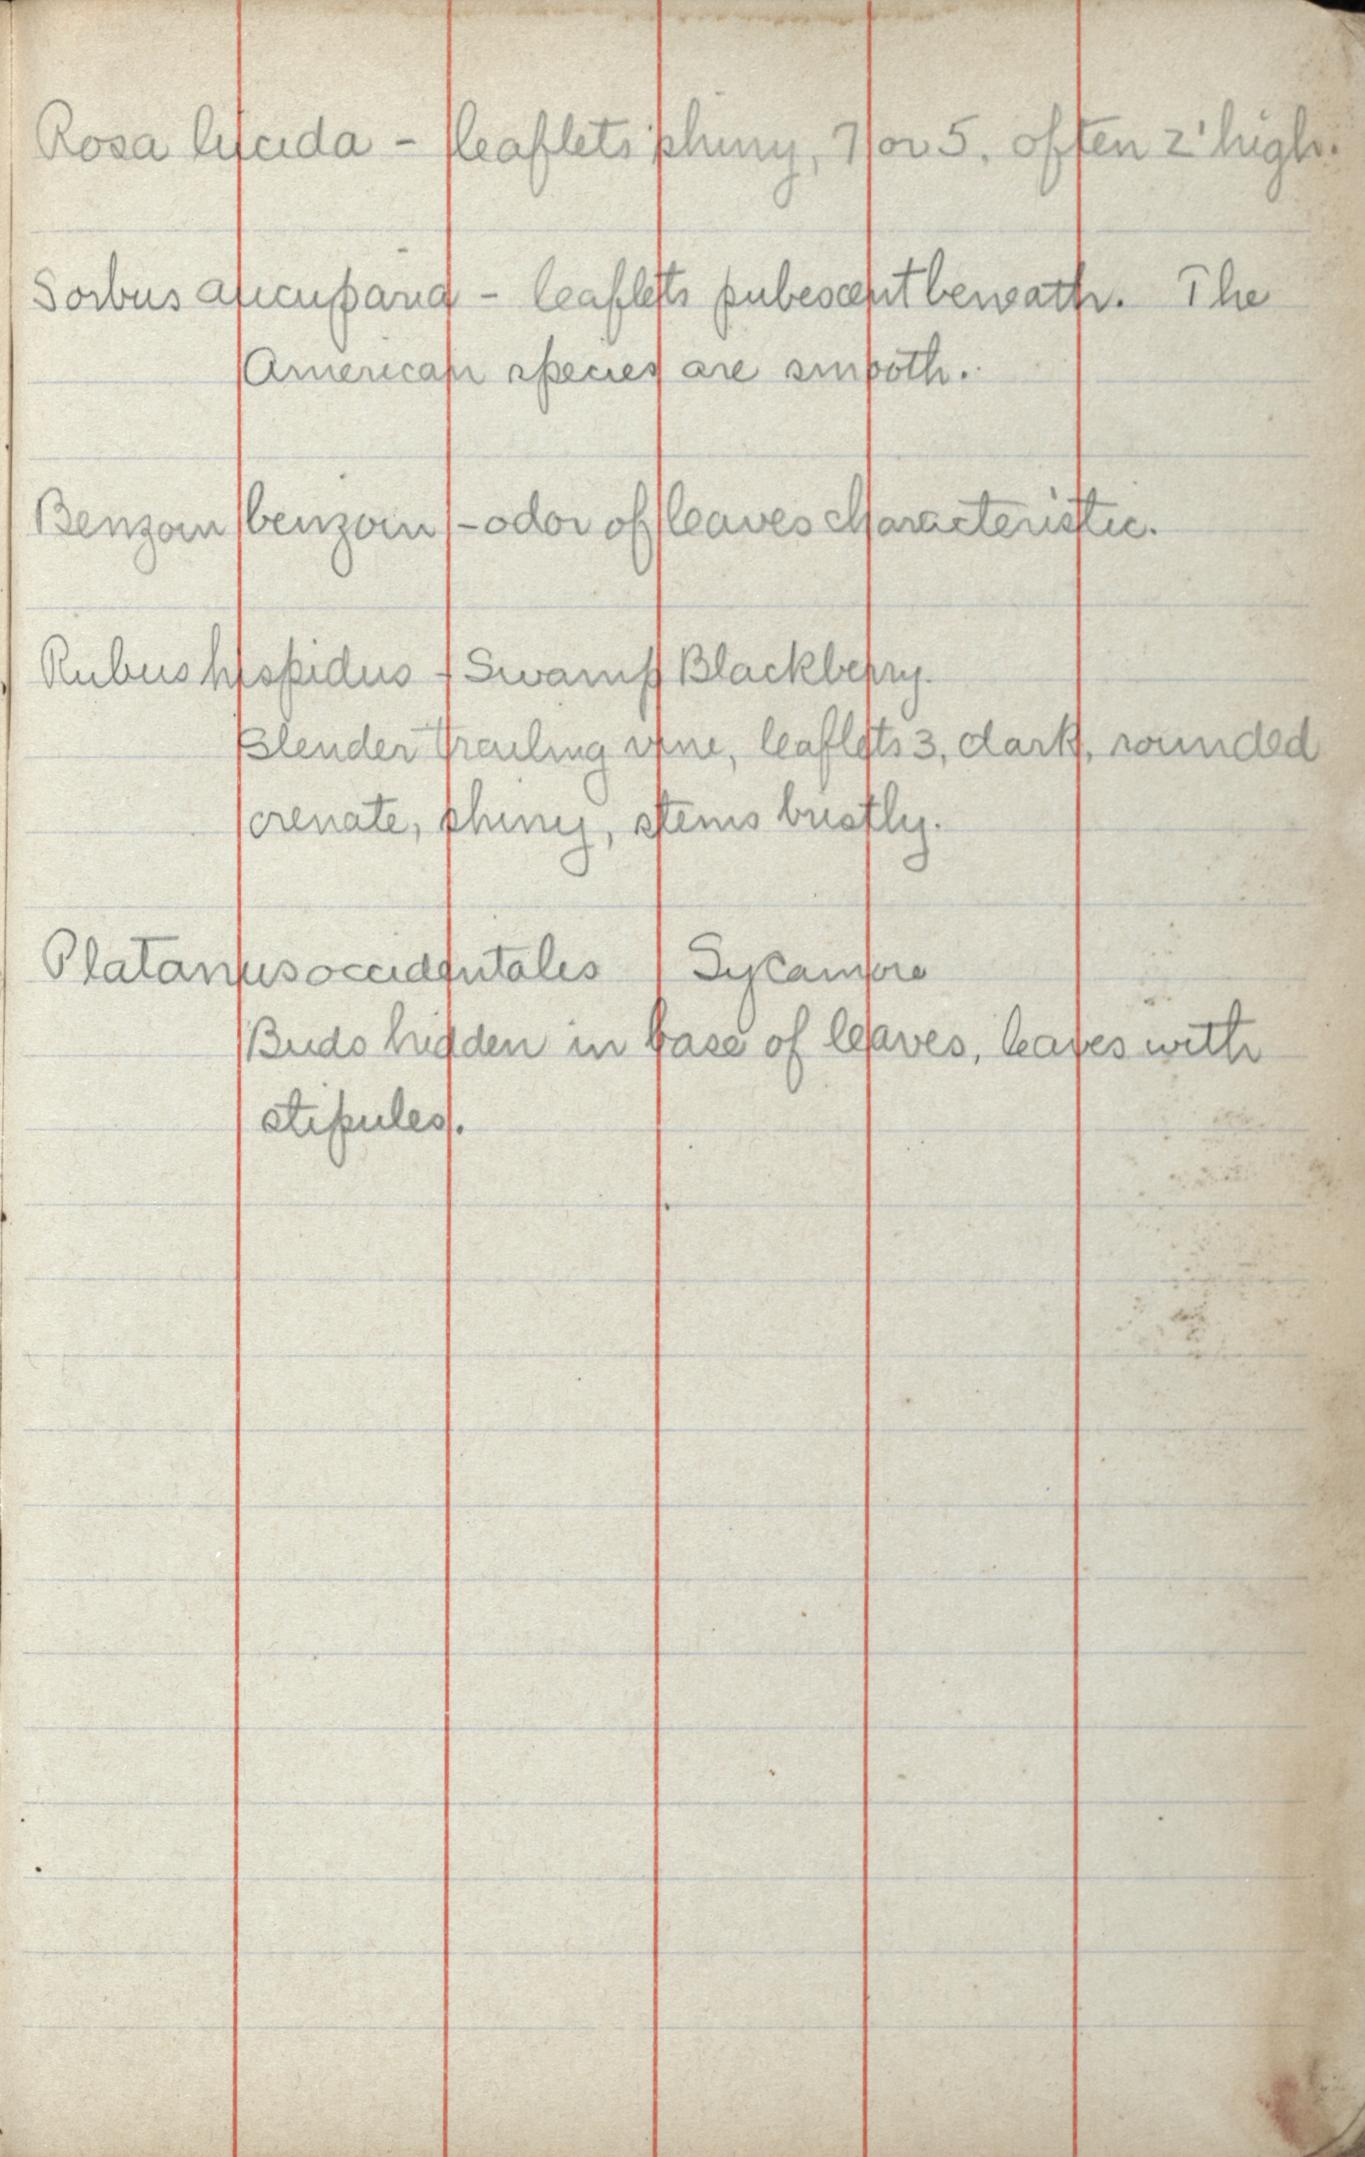 Rosa lucida - leaflets shiny, 7 or 5, often 2' high.
Sorbus aucuparia - leaflets pubescent beneath. The
American species are smooth.
Benzoin benzoin - odor of leaves characteristic.
Rubus hispidus - Swamp Blackberry.
Slender trailing vine, leaflets 3, dark, rounded
crenate, shiny, stems bristly.
Platanus occidentalis Sycamore
Buds hidden in base of leaves, leaves with
stipules.